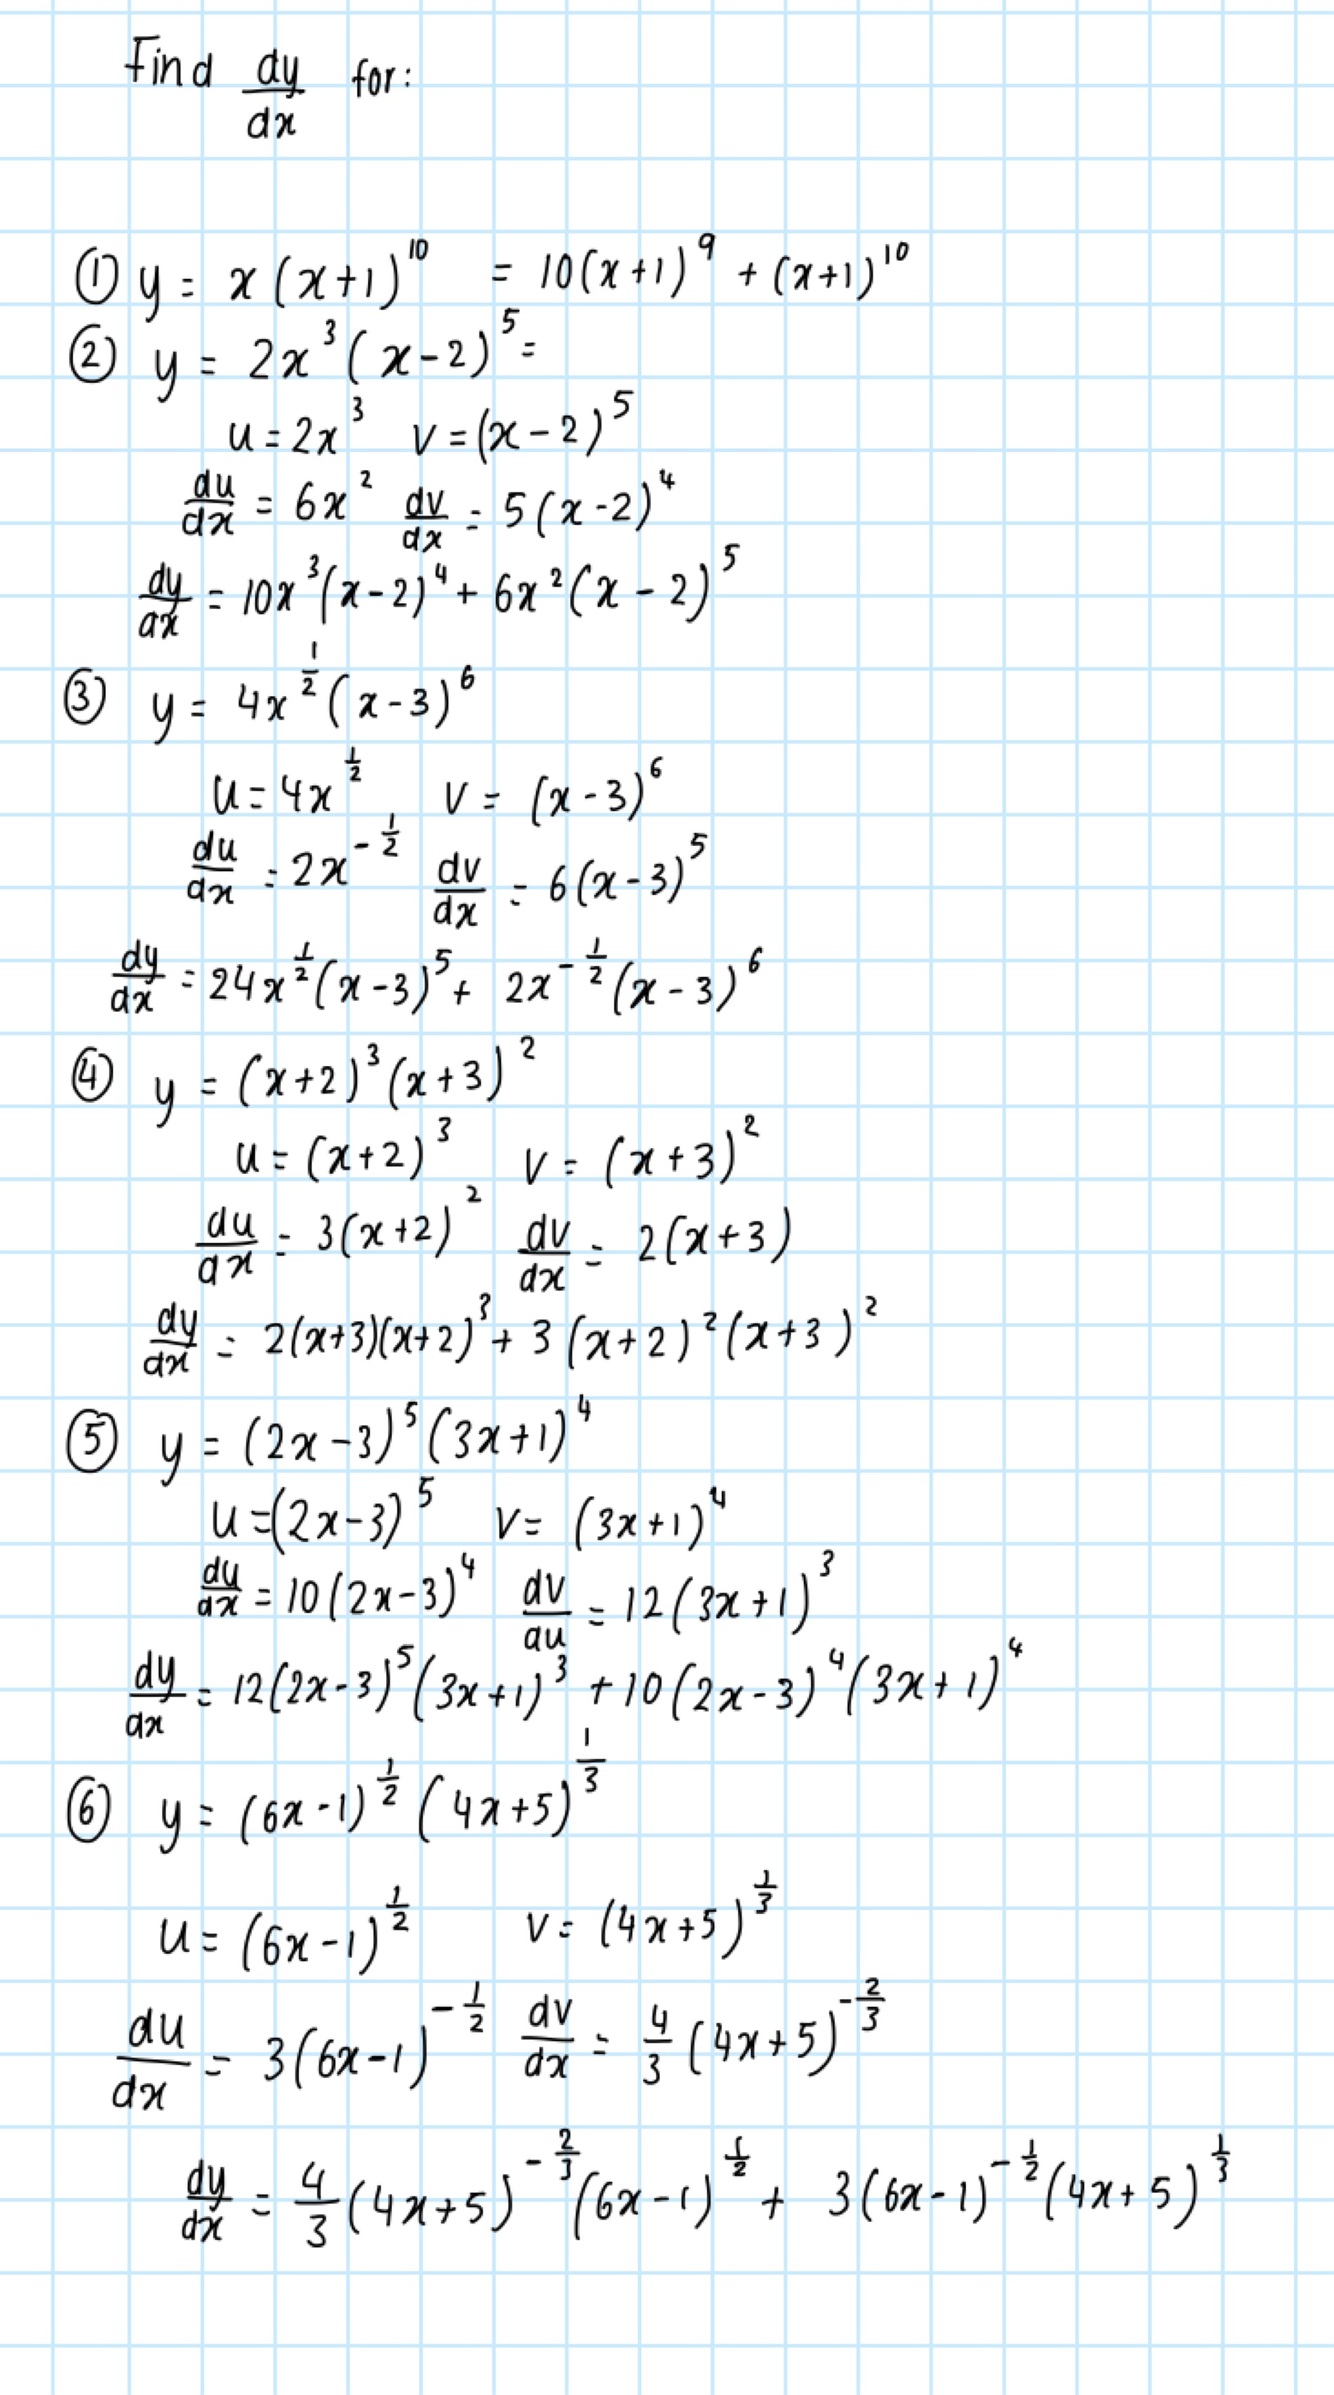 Find dy/dx for:
① y = x(x+1)^10 = 10(x+1)^9 + (x+1)^10
② y = 2x^3(x-2)^5 =
u = 2x^3 v = (x-2)^5
du/dx = 6x^2 dv/dx = 5(x-2)^4
dy/dx = 10x^3(x-2)^4 + 6x^2(x-2)^5
③ y = 4x^(1/2)(x-3)^6
u = 4x^(1/2) v = (x-3)^6
du/dx = 2x^(-1/2) dv/dx = 6(x-3)^5
dy/dx = 24x^(1/2)(x-3)^5 + 2x^(-1/2)(x-3)^6
④ y = (x+2)^3(x+3)^2
u = (x+2)^3 v = (x+3)^2
du/dx = 3(x+2)^2 dv/dx = 2(x+3)
dy/dx = 2(x+3)(x+2)^3 + 3(x+2)^2(x+3)^2
⑤ y = (2x-3)^5(3x+1)^4
u = (2x-3)^5 v = (3x+1)^4
du/dx = 10(2x-3)^4 dv/du = 12(3x+1)^3
dy/dx = 12(2x-3)^5(3x+1)^3 + 10(2x-3)^4(3x+1)^4
⑥ y = (6x-1)^(1/2)(4x+5)^(1/3)
u = (6x-1)^(1/2) v = (4x+5)^(1/3)
du/dx = 3(6x-1)^(-1/2) dv/dx = 4/3(4x+5)^(-2/3)
dy/dx = 4/3(4x+5)^(-2/3)(6x-1)^(1/2) + 3(6x-1)^(-1/2)(4x+5)^(1/3)